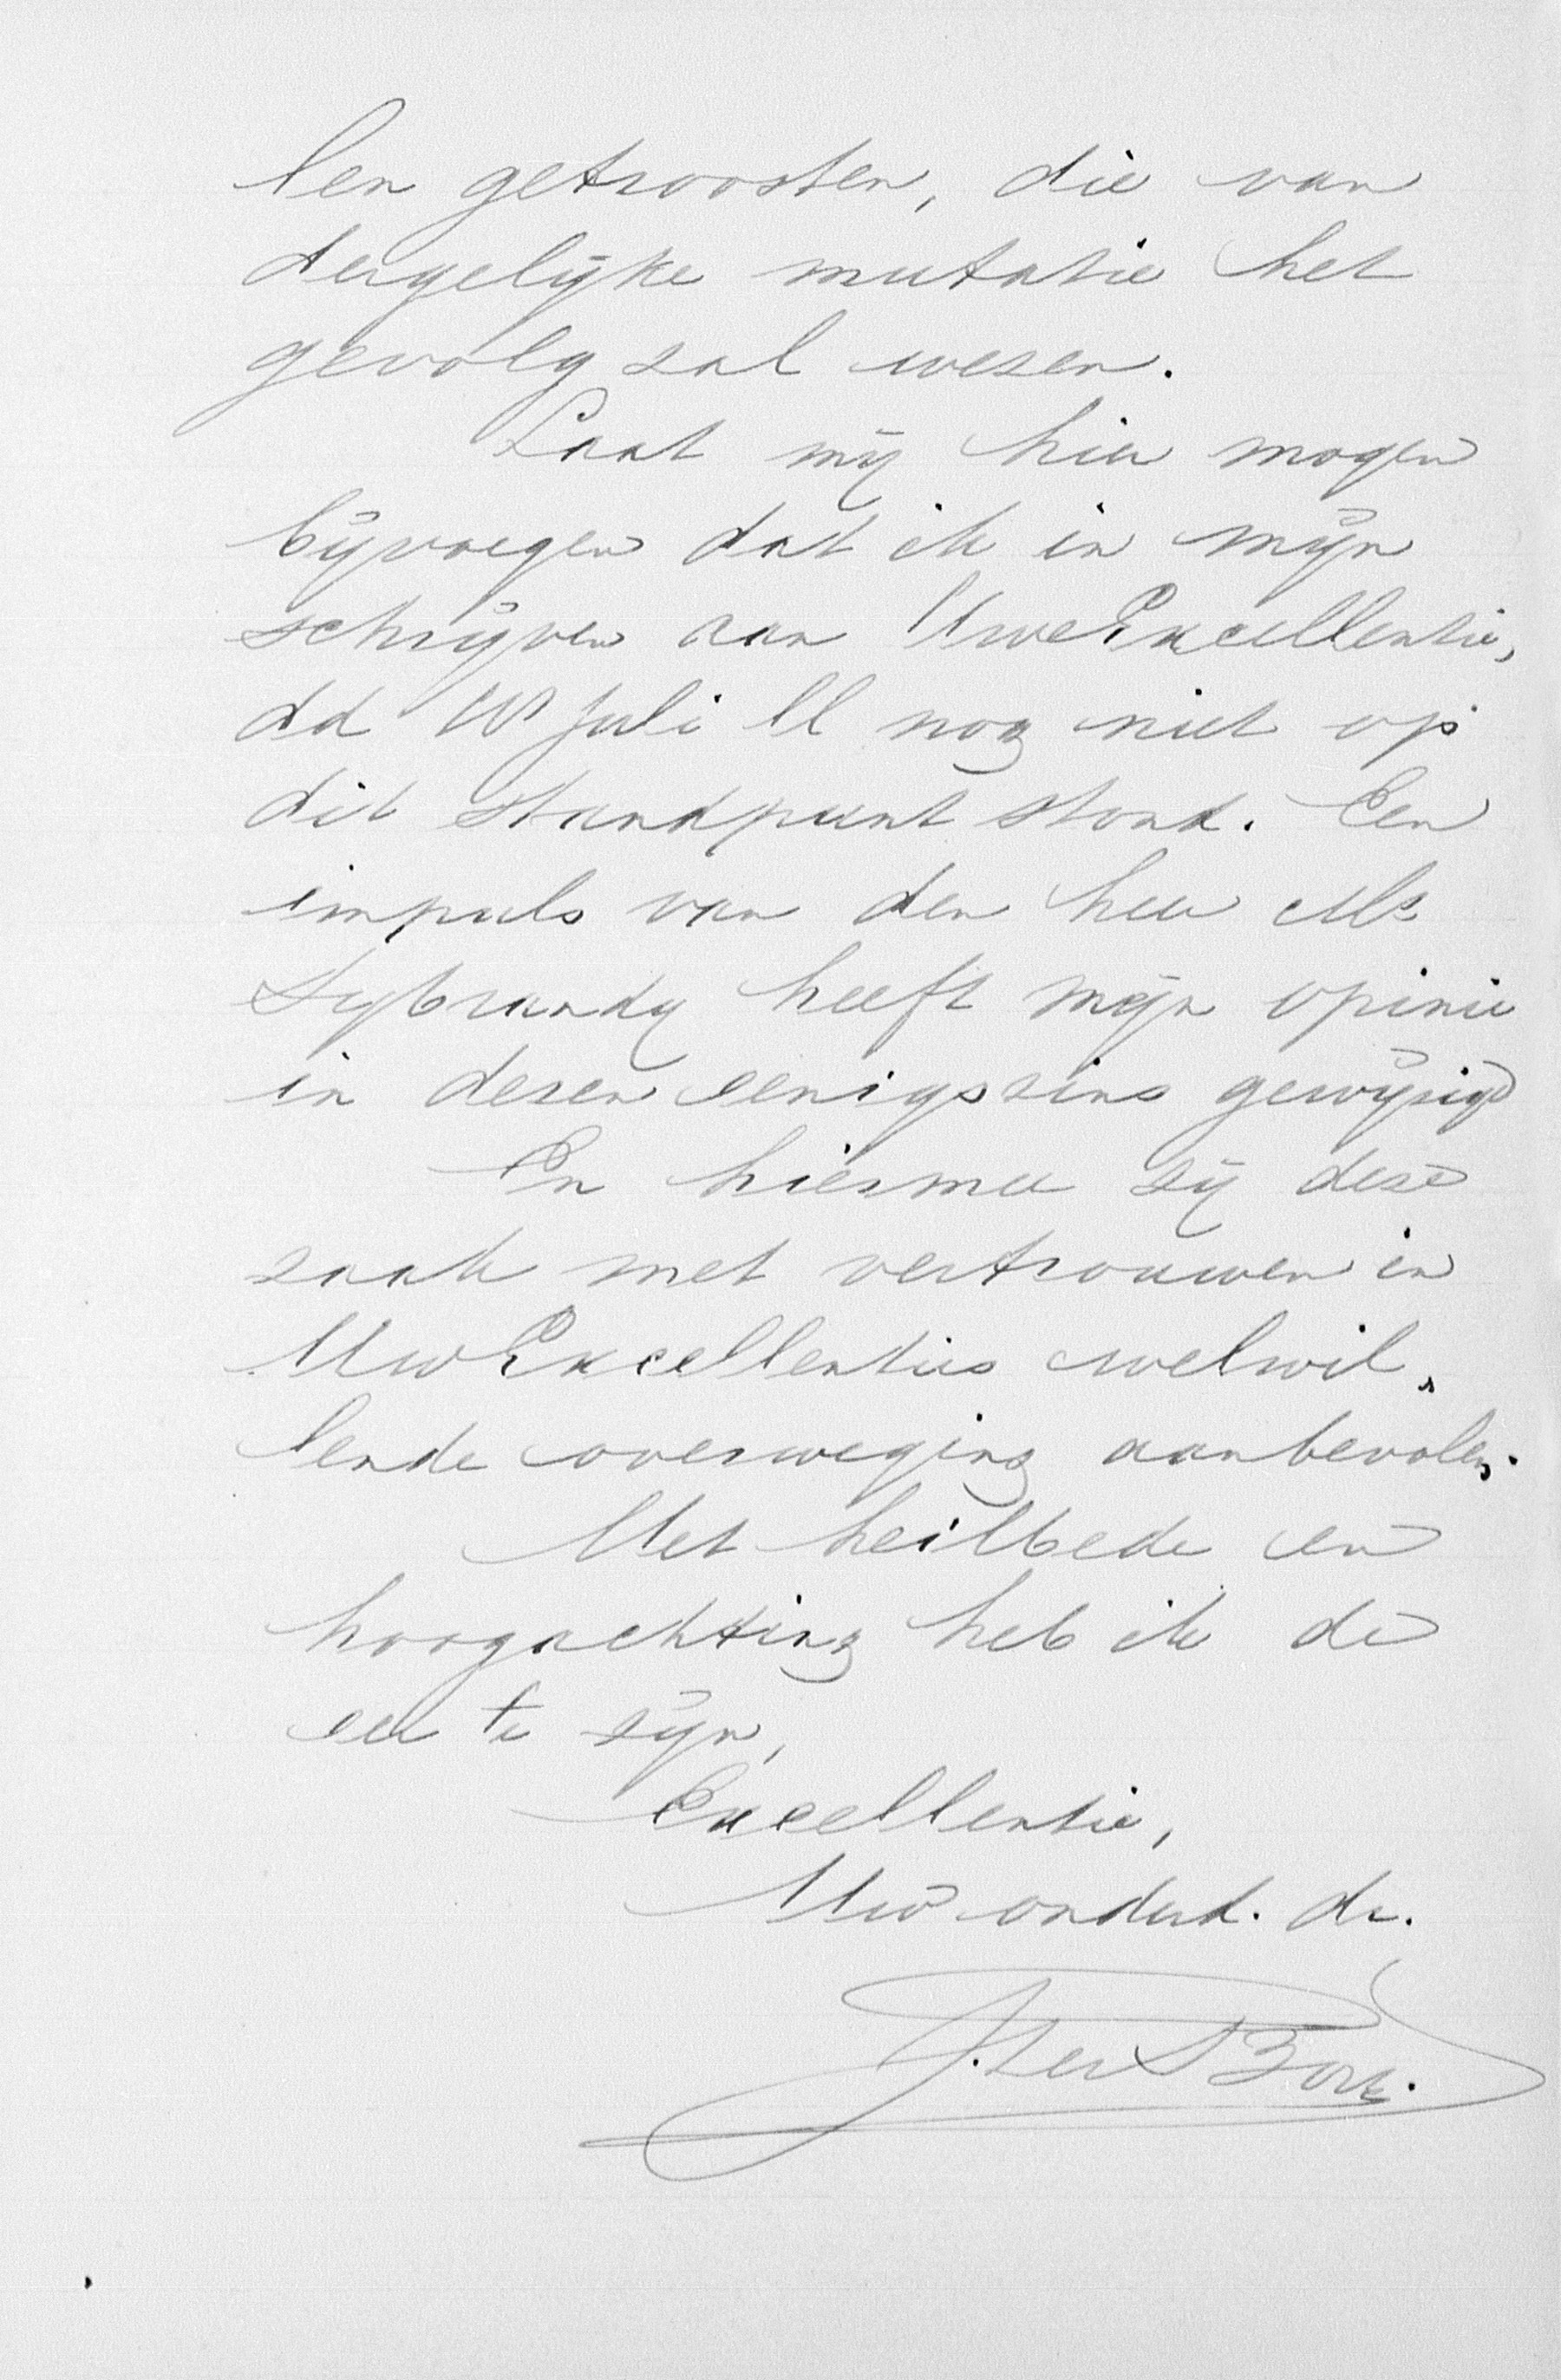 len getroosten, die van
dergelijke mutatie het
gevolg zal wezen.
Laat mij hier mogen
bijvoegen dat ik in mijn
schrijven aan Uwe Excellentie,
dd 10 Juli ll nog niet op
dit standpunt stond. Een
impuls van den heer Mr
Sybrandy heeft mijn opinie
in dezen eenigszins gewijzigd
En hiermee zij deze
zaak met vertrouwen in
Uw Excellenties welwil„
lende overweging aanbevolen.
Met heilbede en
hoogachting heb ik de
eer te zijn,
Excellentie,
Uw onderd. dr.
J. ter Bork.